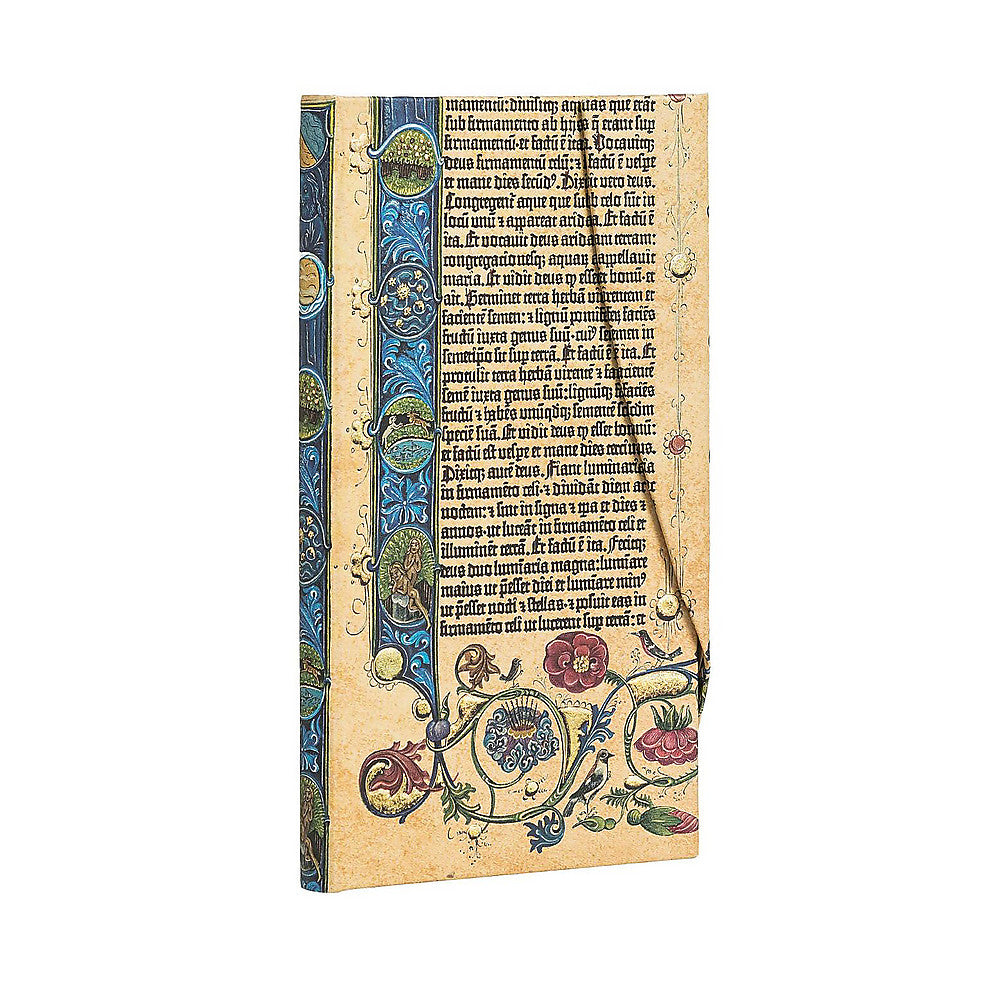 mamentū: diuisitq; aquas que erāt
sub firmamento ab hijs q̄ erant suꝑ
firmamentū· et factū ē ita. Vocauitq;
deus firmamentū celū: ⁊ factū ē vesꝑe
et mane dies secūdꝰ. Dixit vero deus.
Congregent᷑ aque que sub celo sūt in
locū vnū ⁊ appareat arida. Et factū ē
ita. Et vocauit deus aridam terram:
congregacionesq; aquarū appellauit
maria. Et vidit deus ꝙ esset bonū· et
ait. Germinet terra herbā virentem et
facientē semen: ⁊ lignū pomiferū faciēs
fructū iuxta genus suū· cuiꝰ semen in
semetip̄o sit suꝑ terrā. Et factū ē ita. Et
protulit terra herbā virentē ⁊ facientē
semē iuxta genus suū: lignūq; faciēs
fructū ⁊ habēs vnūqdq; sementē scdm
speciē suā. Et vidit deus ꝙ esset bonū:
et factū est vesꝑe et mane dies tercius.
Dixitq; autē deus. Fiant luminaria
in firmamēto celi· ⁊ diuidāt diem ac
noctem: ⁊ sint in signa ⁊ tꝑa et dies ⁊
annos· ut luceāt in firmamēto celi et
illuminēt terrā. Et factū ē ita. Fecitq;
deus duo luminaria magna: luminare
maius ut p̄esset diei et luminare minꝰ
ut p̄esset nocti ⁊ stellas· ⁊ posuit eas in
firmamēto celi ut lucerent suꝑ terrā: et